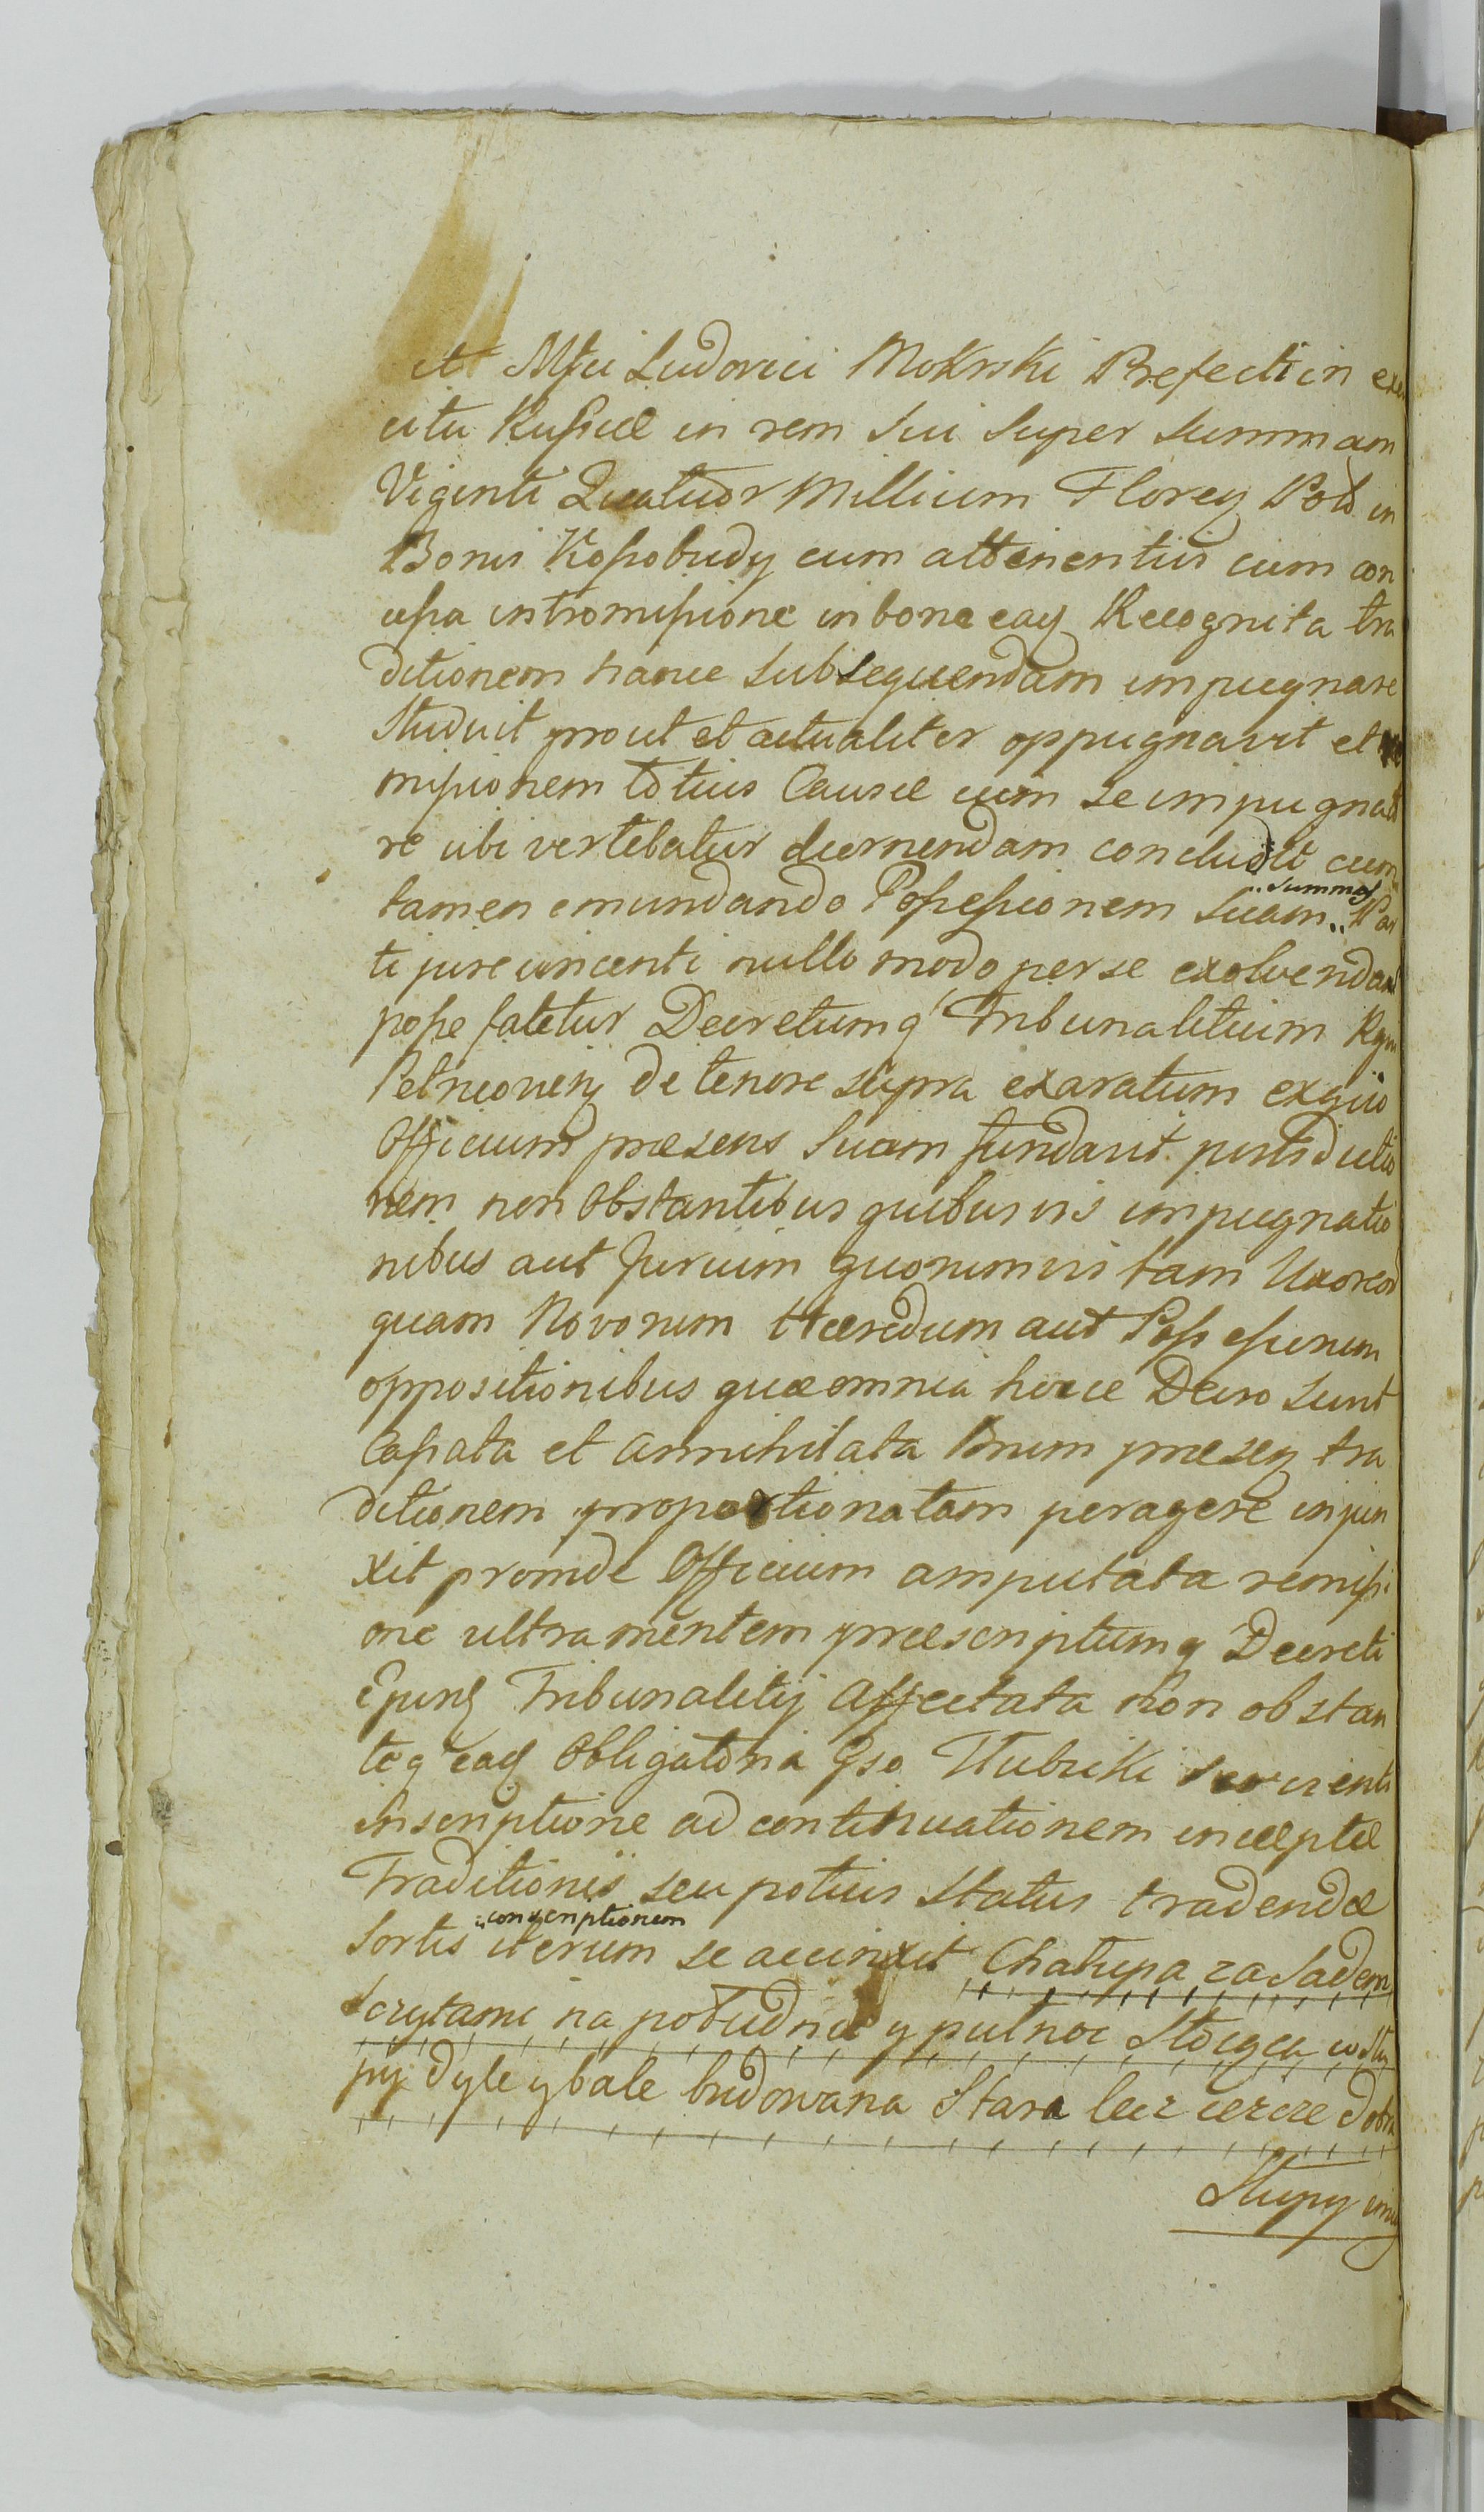 et Mfci Ludovici Mokrski Prefecti in exer
citu Russiæ in rem Sui Super Summam
Viginti Quatuor Millium Floreq Pol in
Bonis Kossobudy cum attinentiis cum con
cessa intromissione in bona eaq Recognita tra
ditionem hance Subsequendam impugnare
Studuit prout et actualiter oppugnavit et re
missionem totius Causæ cum se impugnat
re ubi vertebatur decernendam concludit cum
tamen emundando Possessionem Suam „Summas„ Par
ti jure vincenti nullo modo per se exolvendam
posse fatetur Decretumq Tribunalitium Rgni
Petricovieñ de tenore supra exaratum ex quo
Officium præsens Suam fundavit jurisdictio
nem non Obstantibus quibusvis impugnatio
nibus aut Jurium quorumvis tam Uxoreor
quam Novorum Hæredum aut Possessorum
oppositionibus quæ omnia hocce Decro Sunt
Cassata et annihilata præseq tra
ditionem proportionatam peragere injun
xit proinde Officium amputata remissi
one ultra mentem præscriptumq Decreti
Ejusq Tribunalitij Affectata Non obstan
teq eaq Obligatoria Gso Hubicki servienti
Inscriptione ad continuationem incæptæ
Traditionis seu potius Status tradendæ
Sortis „conscriptionem iterum se accinxit Chałupa za Sadem
Szczytami na południe y pułnoc Stoiąca w Słu
py dyle y bale budowana Stara lecz ieszcze dobra
Słupy